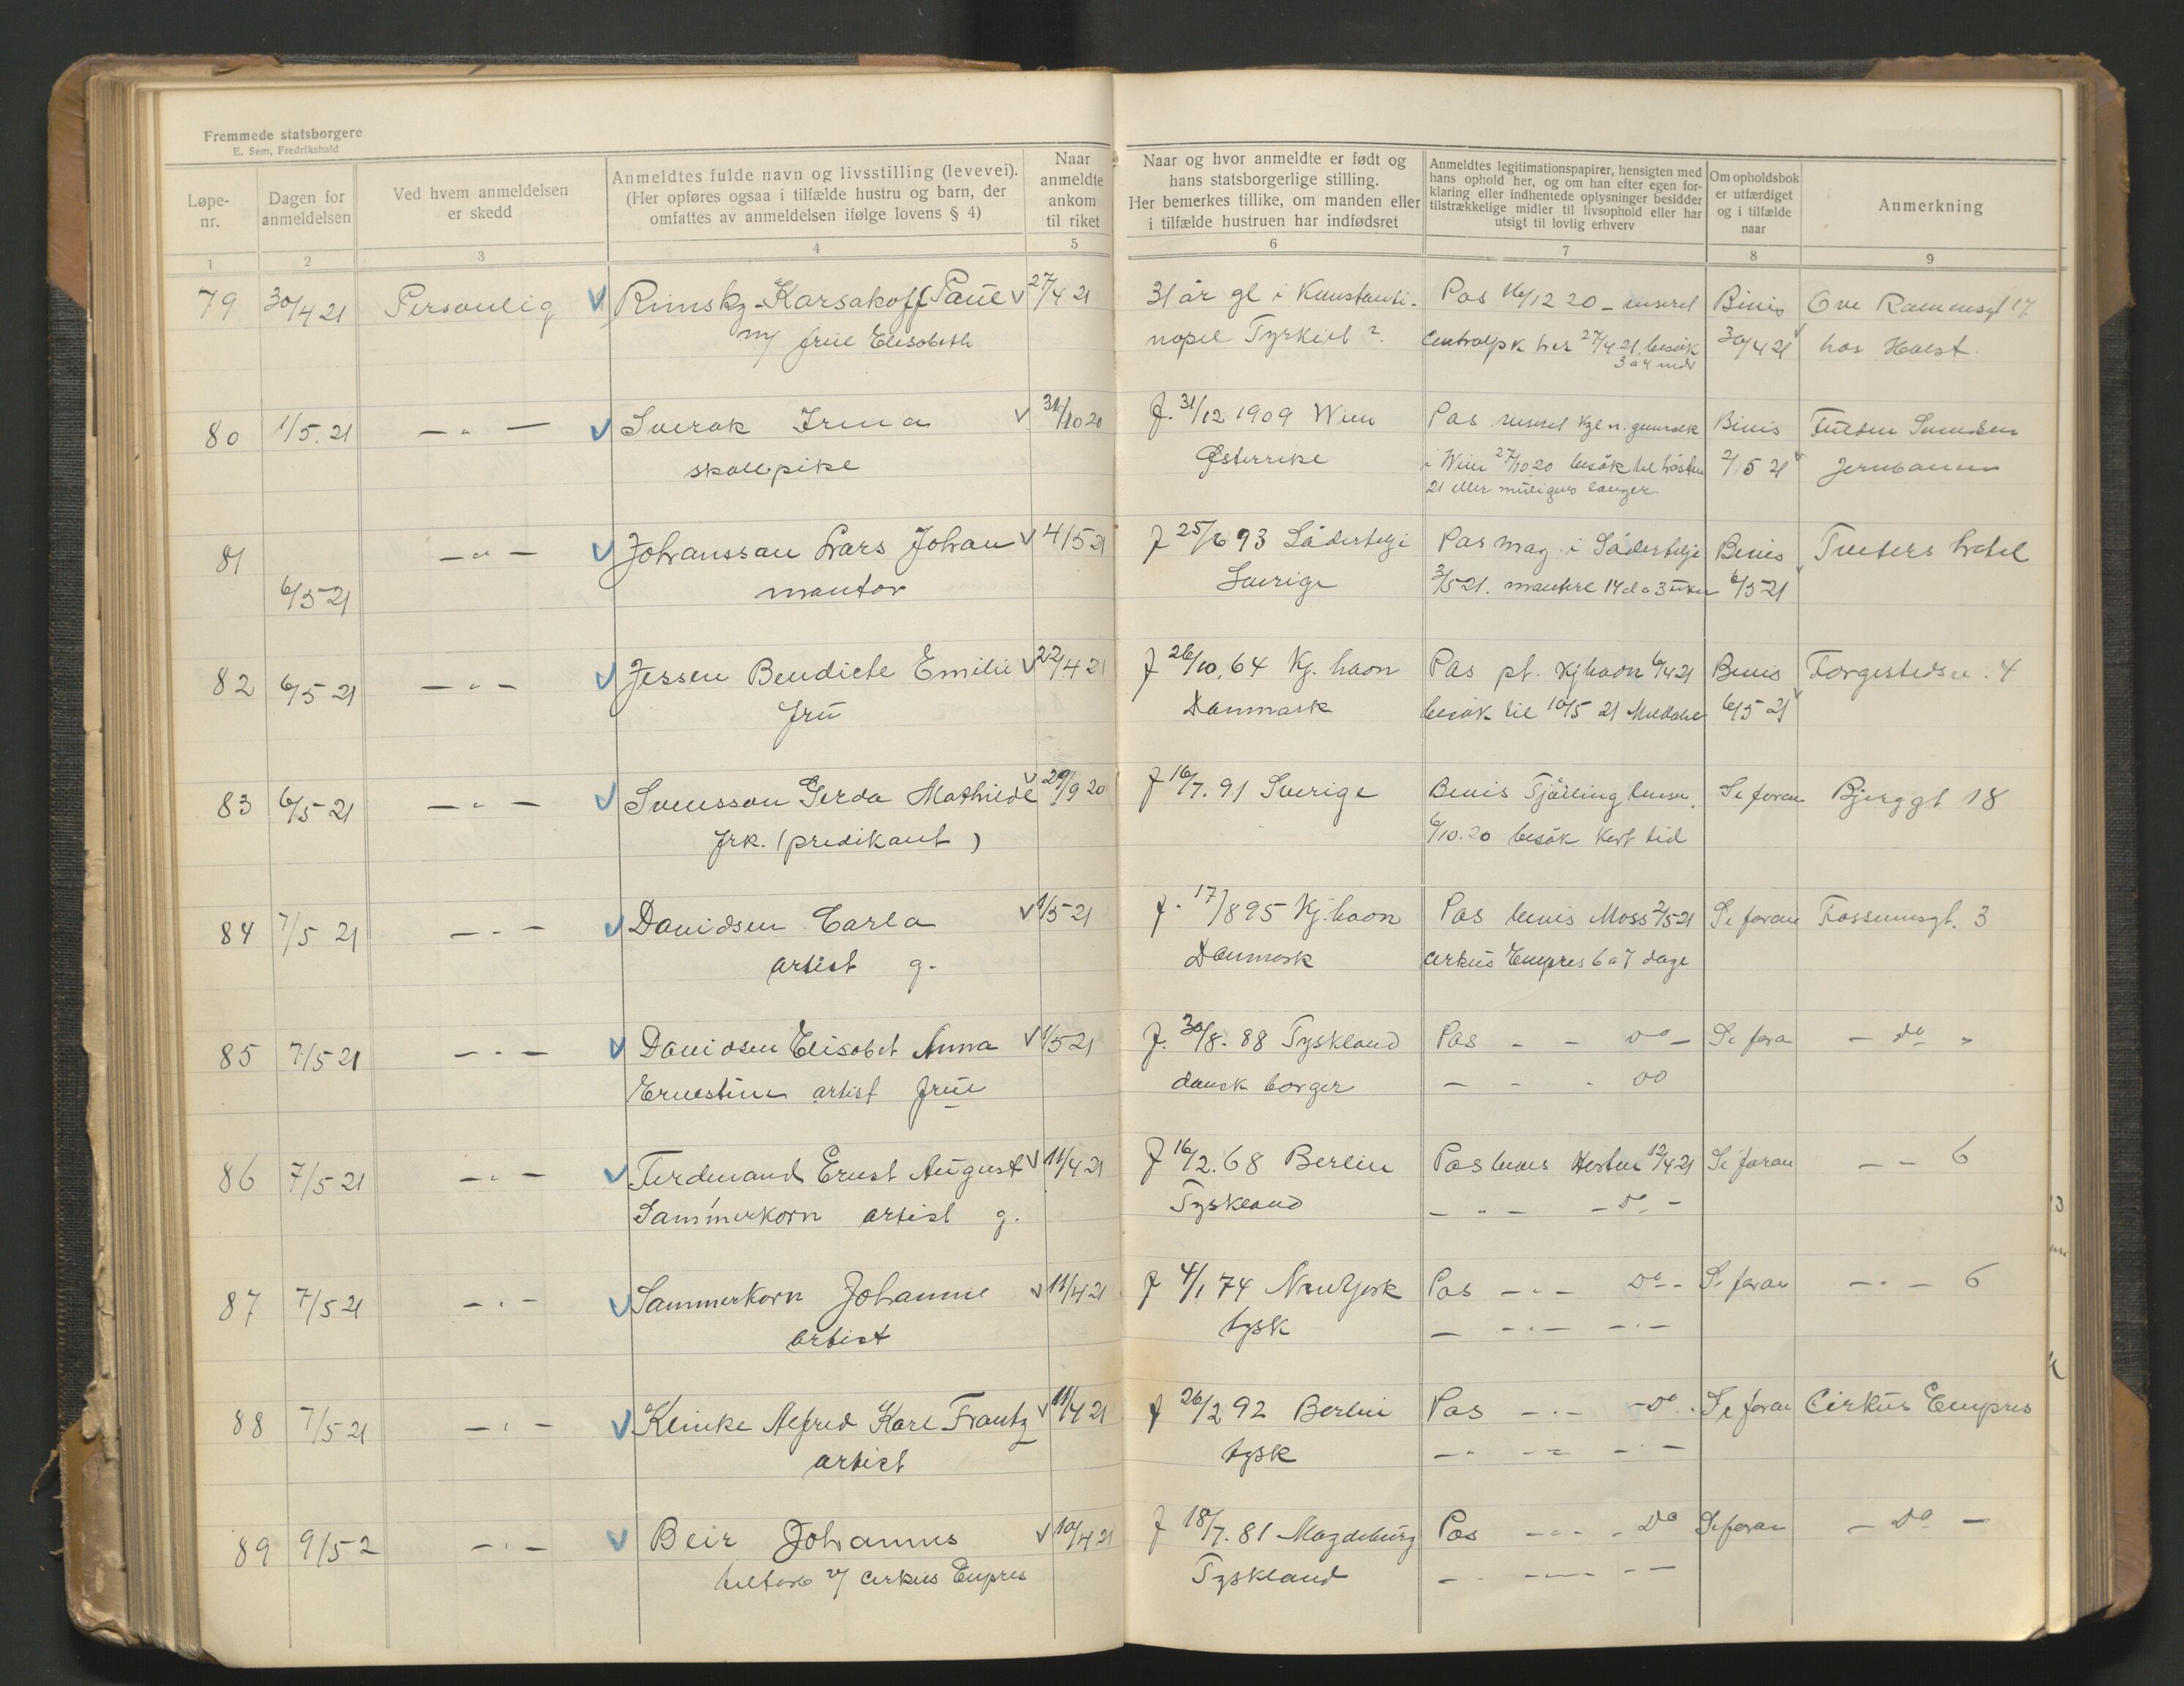 Fremmede statsborgere
E. Sem, Fredrikshald
Løpe-nr.
Dagen for anmeldelsen
Ved hvem anmeldelsen er skedd
Anmeldtes fulde navn og livsstilling (levevei).
(Her opføres ogsaa i tilfælde hustru og barn, der
omfattes av anmeldelsen ifølge lovens § 4)
Naar anmeldte ankom til riket
Naar og hvor anmeldte er født og
hans statsborgerlige stilling.
Her bemerkes tillike, om manden eller
i tilfælde hustruen har indfødsret
Anmeldtes legitimationspapirer, hensigten med
hans ophold her, og om han efter egen for-
klaring eller indhentede oplysninger besidder
tilstrækkelige midler til livsophold eller har
utsigt til lovlig erhverv
Om opholdsbok
er utfærdiget
og i tilfælde
naar
Anmerkning
1 2 3 4 5 6 7 8 9
79 30/4 21 Personlig Rimsky-Karsakoff Paul 27/4 21 31 år gl i Konstanti- Pas 16/12 20 - viseret Bevis Ove Rammsgt 17
m/ frue Elisabeth nopel Tyrkiet ? Centralpk her 27/4 21, besøk 30/4 21 hos Holst.
3 a 4 mdr
80 1/5. 21 - " - Sverak Irma 31/10 20 f. 31/12 1909 Wien Pas viseret kgl. n. Bevis
skolepike Østerrike i Wien 27/10 20 besøk til høsten 2/5 21 Jernbanen
21 eller muligens længer.
81 6/5 21 - " - Johansson Lars Johan 4/5 21 f 25/6 93 Södertelje Pas mag. i Södertelje Bevis hotel
montør Sverige 3/5 21. montere 14 d a 3 uker 6/5 21
82 6/5 21 - " - Jessen Bendicte Emilie 22/4 21 f 26/10. 64 Kj. havn Pas pt. Kjhavn 6/4 21 Bevis Torgestedsv. 4
fru Danmark besøk til 10/5 21 6/5 21
83 6/5 21 - " - Svensson Gerda Mathilde 29/9 20 f 16/7. 91 Sverige Bevis Tjölling lensm. Se foran Bjerggt 18
frk. (predikant) 6/10. 20 besøk kort tid
84 7/5 21 - " - Davidsen Carla 1/5 21 f. 17/8 95 Kj.havn Pas bevis Moss 2/5 21 Se foran Fossumsgt. 3
artist g. Danmark cirkus Empres 6 a 7 dage
85 7/5 21 - " - Davidsen Elisabet Anna 1/5 21 f. 30/8. 88 Tyskland Pas - - do - Se fora - do "
Ernestine artist frue dansk borger - - - do
86 7/5 21 - " - Ferdinand Ernst August 11/4 21 f 16/2. 68 Berlin Pas bevis Horten 12/4 21 Se foran - - 6
Sammerkorn artist g. Tyskland - " - - do -
87 7/5 21 - " - Sammerkorn Johanne 11/4 21 f 4/1 74 NewYork Pas - " - do - Se foran - " - 6
artist tysk - - " - - " -
88 7/5 21 - " - Keinke Alfred Karl Frantz 11/4 21 f 26/2 92 Berlin Pas - " - do Se foran Cirkus Empres
artist tysk - " - " - - " -
89 9/5 2 - " - Beir Johannes 10/4 21 f 18/7. 81 Magdeburg Pas - " - do Se foran - do -
v/ cirkus Empres Tyskland - " - - - -